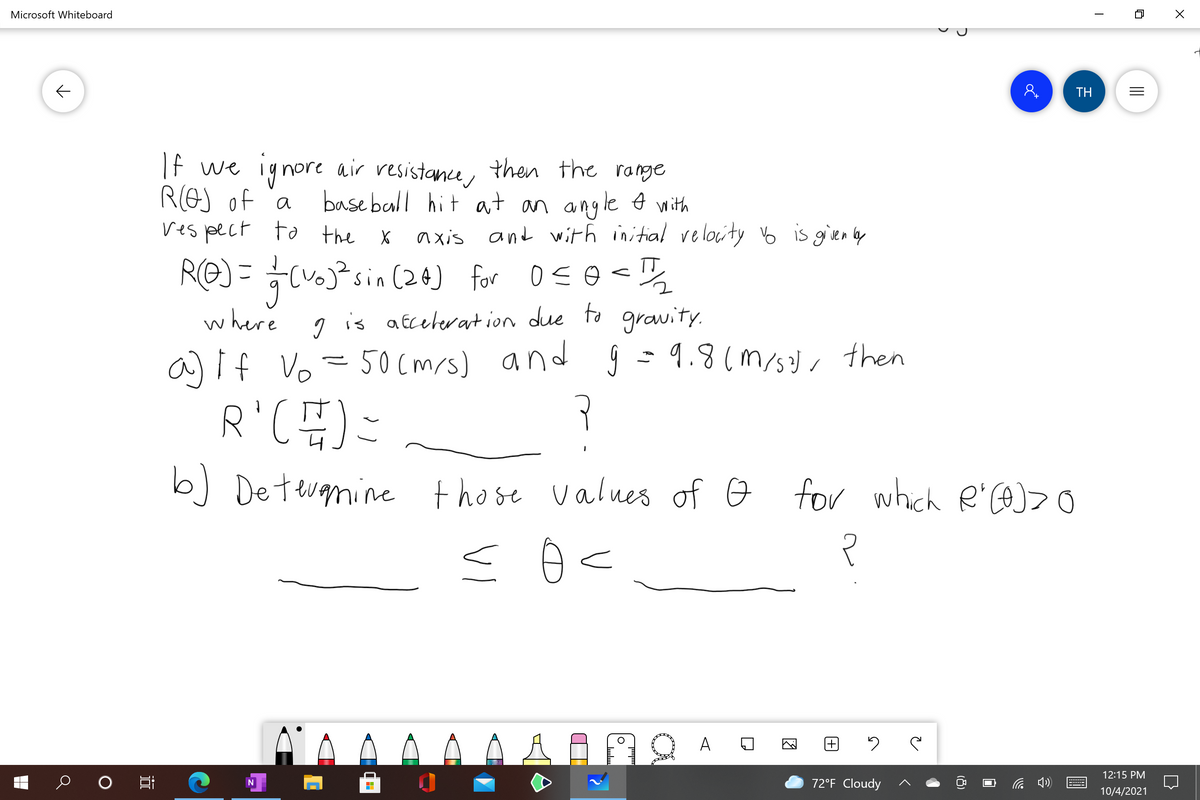 Microsoft Whiteboard
TH
If we ignore air resistance, then the range
R(θ) of a baseball hit at an angle θ with
respect to the x axis and with initial velocity v₀ is given by
R(θ) = 1/g (v₀)² sin(2θ) for 0 ≤ θ < π/2
where g is acceleration due to gravity.
a) If V₀ = 50 (m/s) and g = 9.8 (m/s²), then
R'(π/4) = ____ ?
b) Determine those values of θ for which R'(θ) > 0
____ ≤ θ < ____ ?
A
N
72°F Cloudy
12:15 PM
10/4/2021